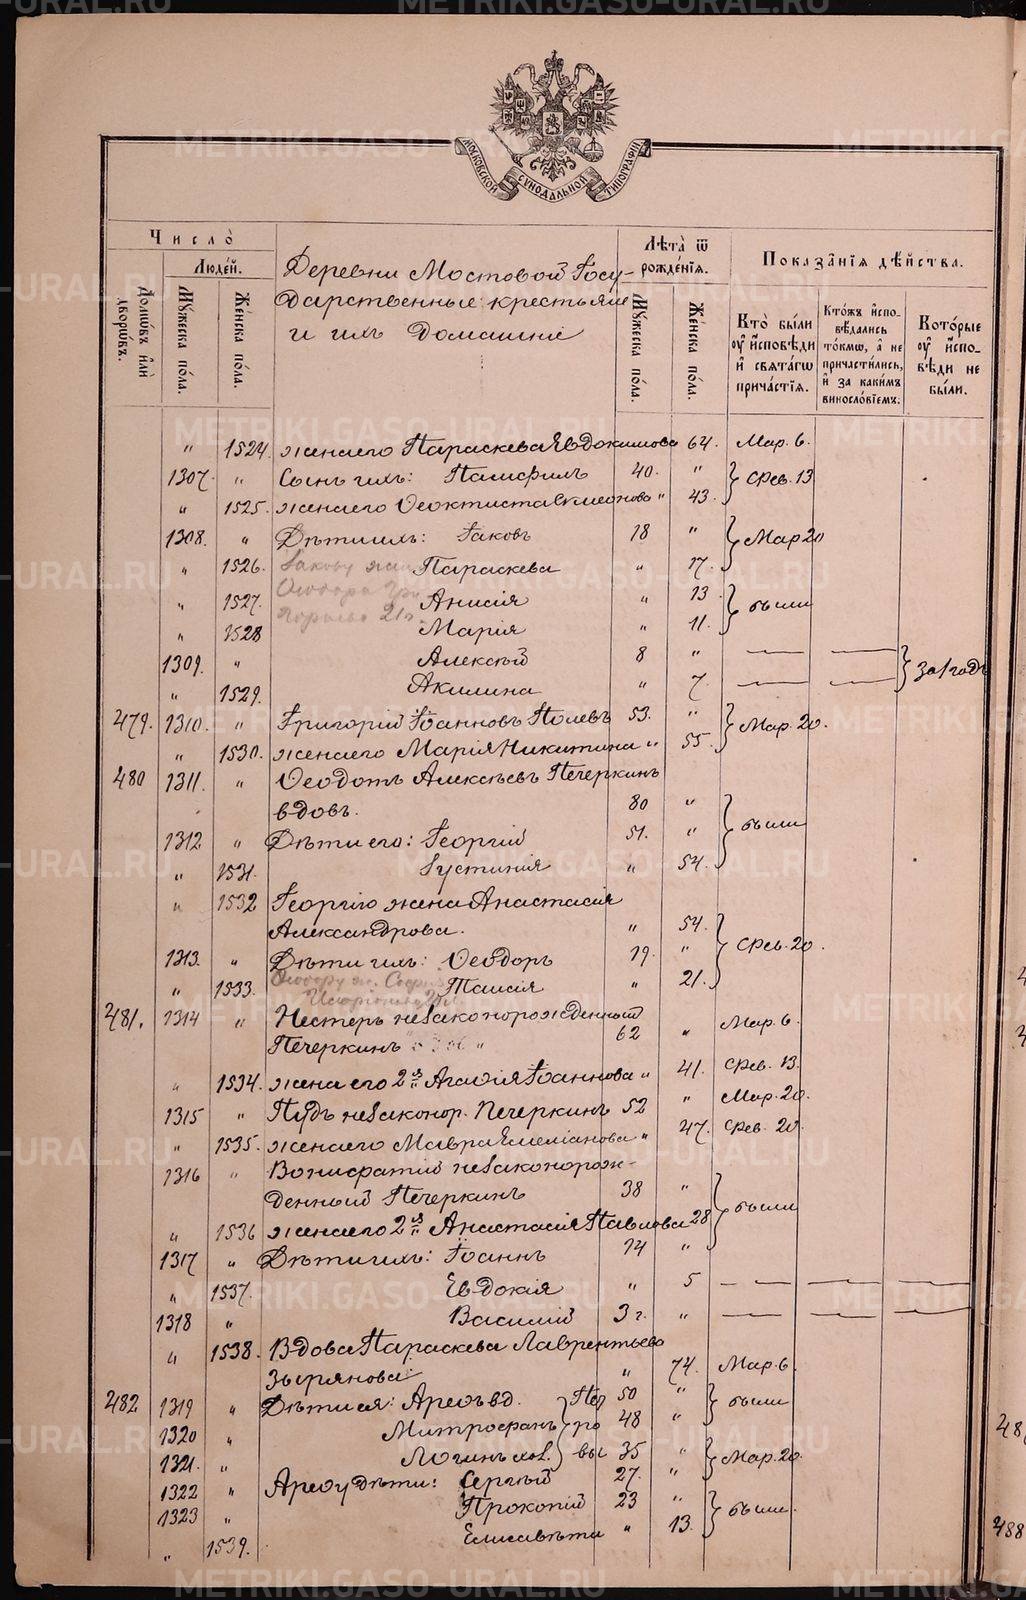 МОСКОВСКОЙ СѴНОДАЛЬНОЙ ТИПОГРАФІИ
Число̀
Людéй.
Домѡ́въ и҆лѝ дворѡ́въ.
Мꙋ́жеска по́ла.
Же́нска по́ла.
Деревни Мостовой Госу-
дарственные крестьяне
и ихъ домашніе
Лѣ́та ѿ рожде́нїѧ.
Мꙋ́жеска по́ла.
Же́нска по́ла.
Показа̑нїѧ дѣ́йства.
Кто̀ бы́ли ᲂу҆ и҆сповѣ́ди и҆ свѧта́гѡ прича́стїѧ.
Кто́жъ и҆спо-вѣ́дались то́кмѡ, а҆ не причасти́лись, и҆ за каки́мъ винослові́емъ.
Кото́рые ᲂу҆ и҆спо-вѣ́ди не бы́ли.
" 1524. жена его Параскева Евдокимова 64. Мар. 6.
1307. " Сынъ ихъ: Памфилъ 40. " } Фев. 13
" 1525. жена его Ѳеоктиста " 43.
1308. " Дѣти ихъ: Іаковъ 18 " } Мар 20
" 1526. Іакову жена Параскева " 17.
" 1527. Ѳеодора Анисія " 13 } были
" 1528 21 Марія " 11.
1309. " Алексѣй 8 " } за 1 годъ
" 1529. Акилина " 7.
479. 1310. " Григорій Іоанновъ Полевъ 53. " } Мар. 20.
" 1530. жена его Марія Никитина " 55.
480 1311. " Ѳеодотъ Алексѣевъ Печеркинъ
вдовъ. 80 " } были
1312 " Дѣти его: Георгій 51. "
" 1531. Іустинія " 54.
" 1532 Георгію жена Анастасія
Александрова. " 54. } Фев. 20.
1313. " Дѣти ихъ: Ѳеодоръ 19. "
" 1533. Ѳеодору ж. Таисія " 21.
481. 1314 " Нестеръ незаконорожденный
Печеркинъ 62 " Мар. 6.
" 1534. жена его 2я Агафія Іоаннова " 41. Фев. 13.
1315 " Пудъ незаконор. Печеркинъ 52 " Мар. 20.
" 1535. жена его Мавра Емеліанова " 47. Фев. 20.
1316 " Вонифатій незаконорож-
денный Печеркинъ 38 " } были
" 1536 жена его 2я Анастасія Павлова 28
1317 " Дѣти ихъ: Іоаннъ 14 "
" 1537. Евдокія " 5
1318 " Василій 3 г. "
" 1538. Вдова Параскева Лаврентьева
Зырянова " 74. Мар. 6.
482 1319 " Дѣти ея: Ареѳъ вд. 50 " } были
1320 " Митрофанъ 48 "
1321. " Логинъ хол. 35 " } Мар. 20.
1322 " Ареѳу дѣти: Сергѣй 27. "
1323 " Прокопій 23 " } были.
" 1539. Елисавета " 13.
488
METRIKI.GASO-URAL.RU